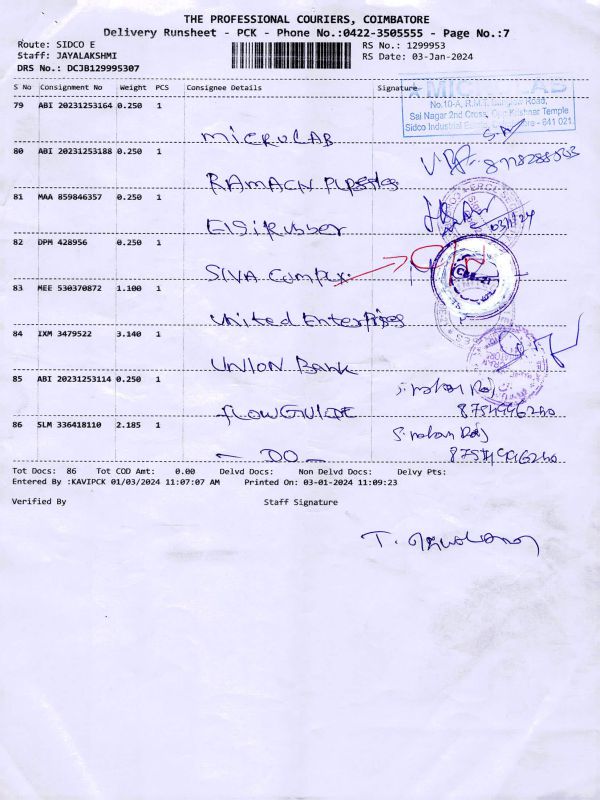 THE PROFESSIONAL COURIERS, COIMBATORE
Delivery Runsheet - PCK - Phone No.:0422-3505555 - Page No.:7
Route: SIDCO E
Staff: JAYALAKSHMI
DRS No.: DCJB129995307
RS No.: 1299953
RS Date: 03-Jan-2024
S No Consignment No Weight PCS Consignee Details Signature
79 ABI 20231253164 0.250 1
MICROLAB
MICRO LAB
No.10-A, R.M.T. Bunglow Road,
Sai Nagar 2nd Cross, Opp Krishnar Temple
Sidco Industrial Estate, Coimbatore - 641 021.
80 ABI 20231253188 0.250 1
81 MAA 859846357 0.250 1
03/1/24
82 DPM 428956 0.250 1
SIVA
83 MEE 530370872 1.100 1
United Enterprises
84 IXM 3479522 3.140 1
UNION Bank
85 ABI 20231253114 0.250 1
86 SLM 336418110 2.185 1
- DO -
Tot Docs: 86 Tot COD Amt: 0.00 Delvd Docs: Non Delvd Docs: Delvy Pts:
Entered By :KAVIPCK 01/03/2024 11:07:07 AM Printed On: 03-01-2024 11:09:23
Verified By Staff Signature